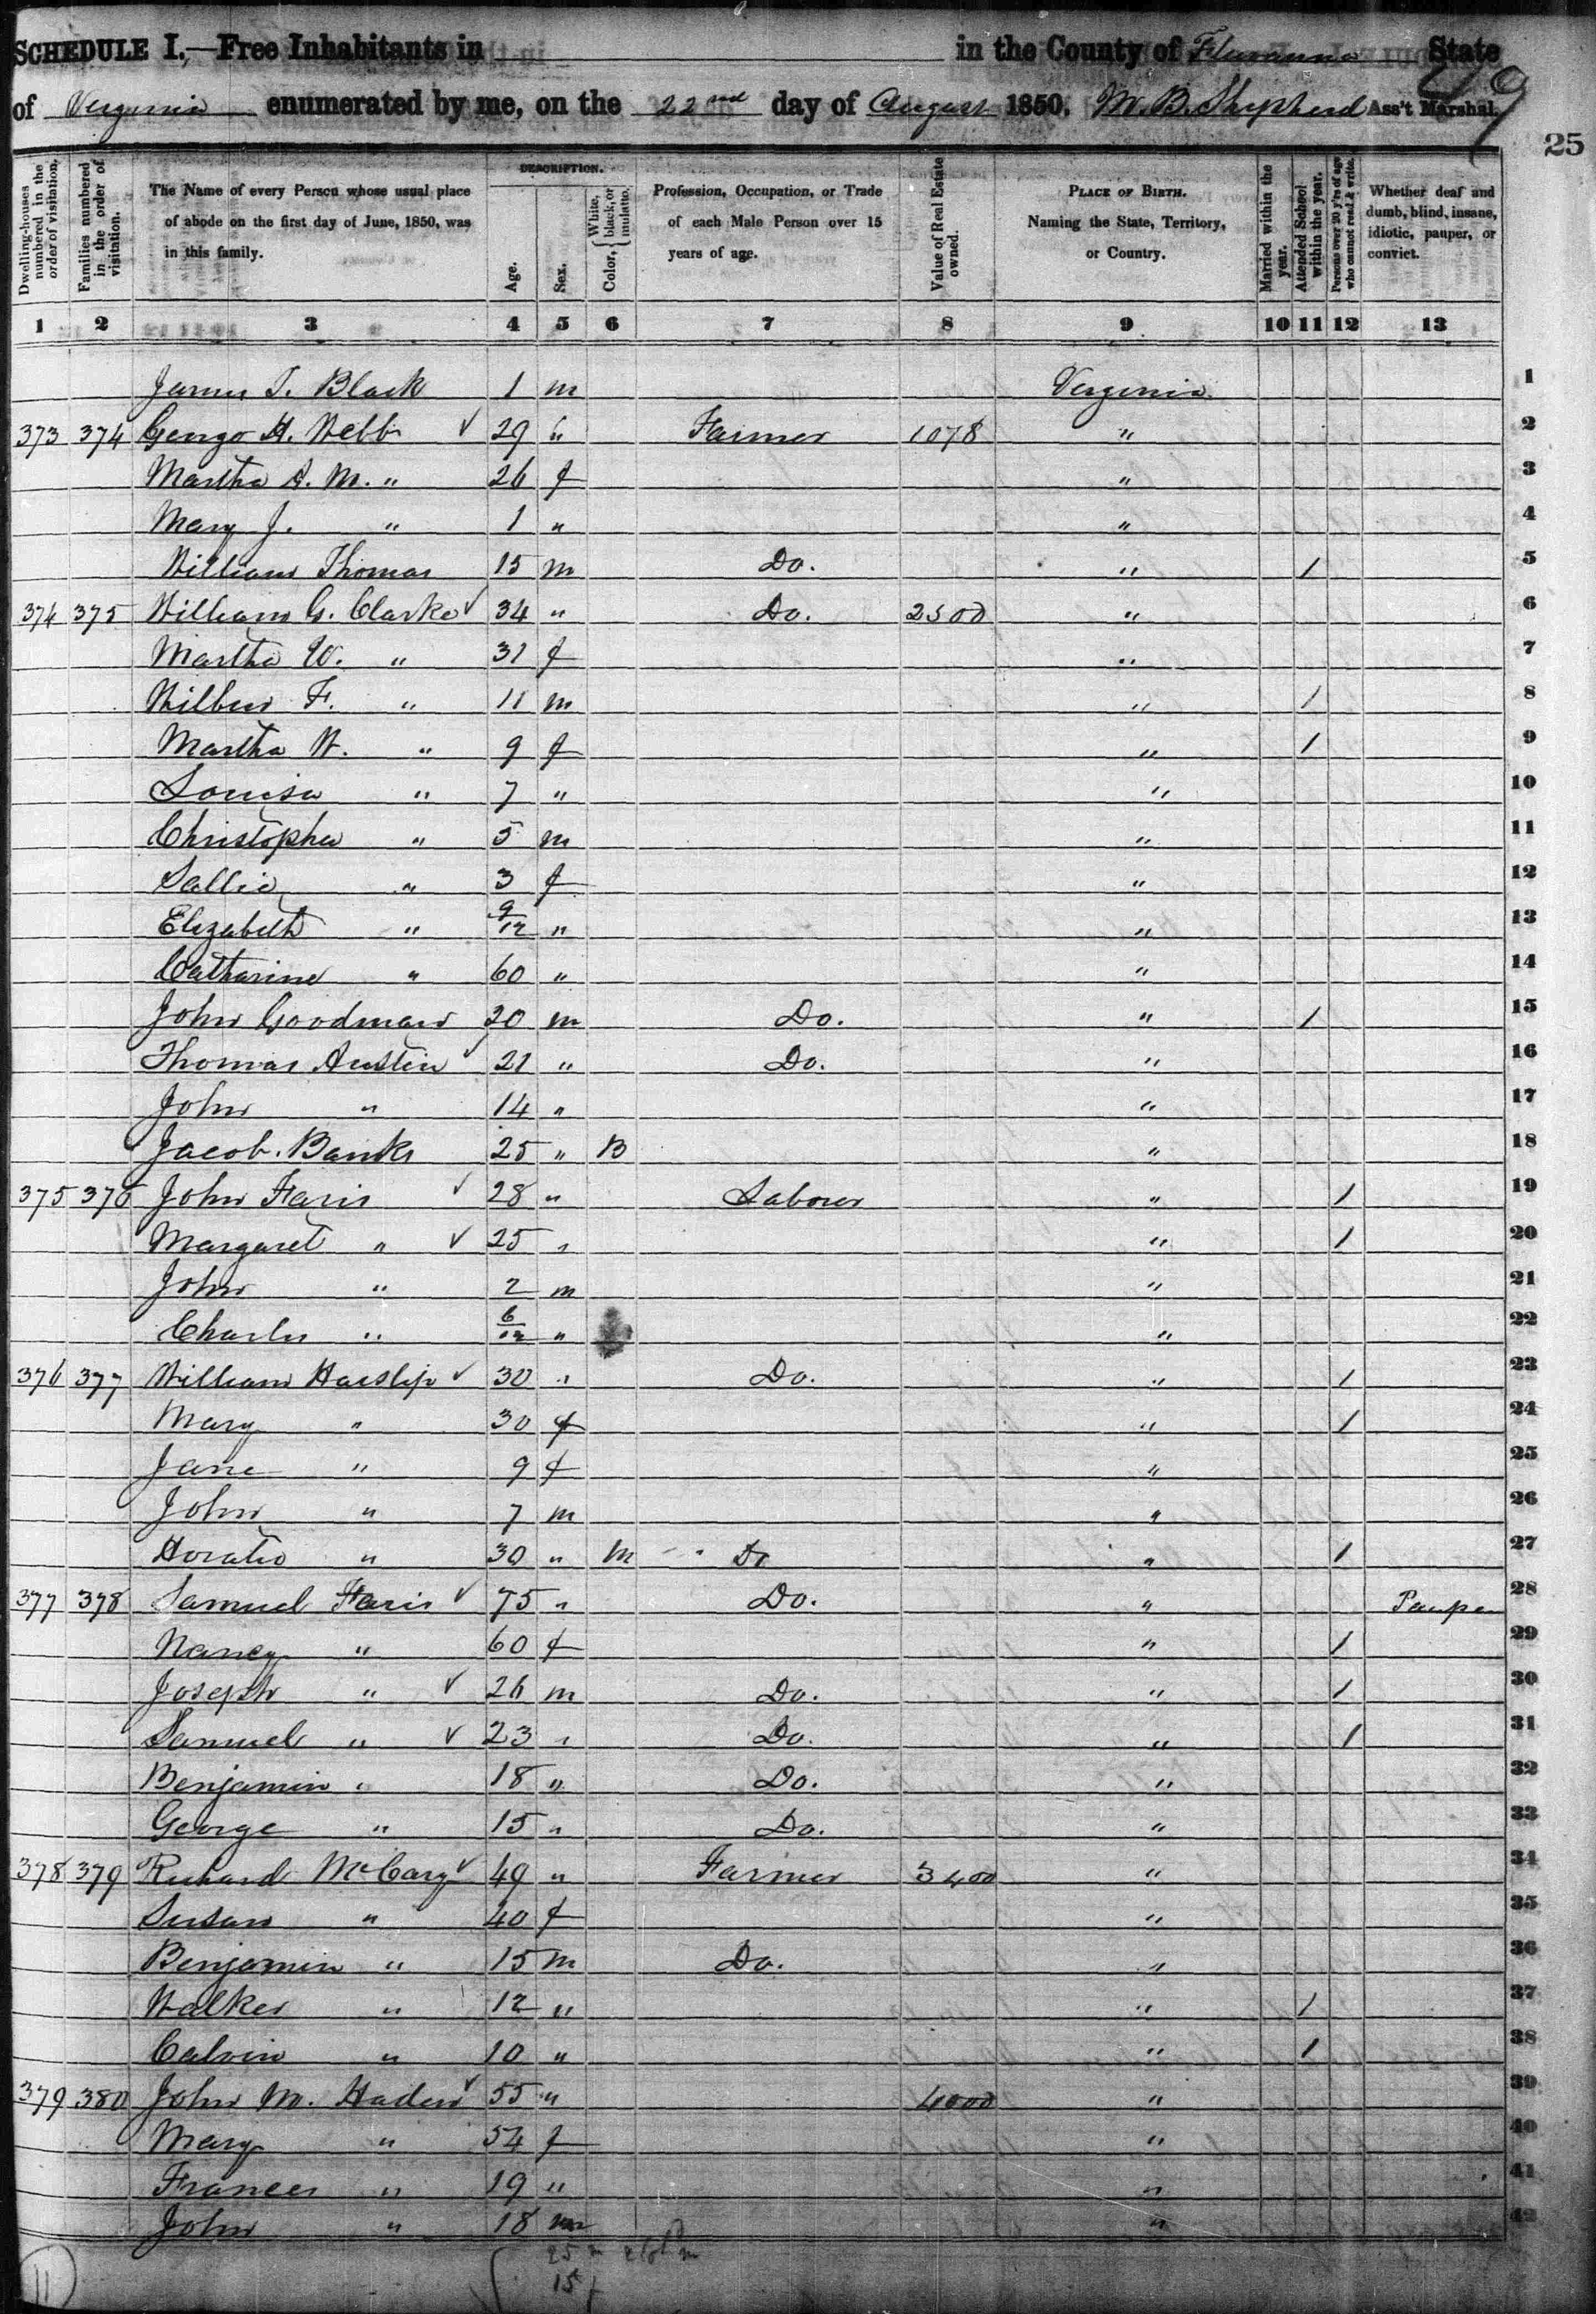 SCHEDULE I.—Free Inhabitants in in the County of Fluvanna State
of Virginia enumerated by me, on the 22nd day of August 1850. M. B. Shepherd Ass't Marshal.
25
Dwelling-houses numbered in the order of visitation.
Families numbered in the order of visitation.
The Name of every Person whose usual place of abode on the first day of June, 1850, was in this family.
DESCRIPTION.
Age.
Sex.
Color, { White, black, or mulatto.
Profession, Occupation, or Trade of each Male Person over 15 years of age.
Value of Real Estate owned.
PLACE OF BIRTH. Naming the State, Territory, or Country.
Married within the year.
Attended School within the year.
Persons over 20 y'rs of age who cannot read & write.
Whether deaf and dumb, blind, insane, idiotic, pauper, or convict.
1 2 3 4 5 6 7 8 9 10 11 12 13
James T. Black 1 m Virginia 1
373 374 George H. Webb ✓ 29 " Farmer 1078 " 2
Martha A. M. " 26 f " 3
Mary J. " 1 " " 4
William Thomas 15 m Do. " / 5
374 375 William G. Clarke ✓ 34 " Do. 2500 " 6
Martha W. " 31 f " 7
Wilbur F. " 11 m " / 8
Martha W. " 9 f " / 9
Louisa " 7 " " 10
Christopher " 5 m " 11
Sallie " 3 f " 12
Elizabeth " 9/12 " " 13
Catharine " 60 " " 14
John Goodman 20 m Do. " / 15
Thomas Austin ✓ 21 " Do. " 16
John " 14 " " 17
Jacob Banks 25 " B " 18
375 376 John Faris ✓ 28 " Laborer " / 19
Margaret " ✓ 25 " " / 20
John " 2 m " 21
Charles " 6/12 " " 22
376 377 William Haislip ✓ 30 " Do. " / 23
Mary " 30 f " / 24
Jane " 9 f " 25
John " 7 m " 26
Horatio " 30 " M Do " / 27
377 378 Samuel Faris ✓ 75 " Do. " Pauper 28
Nancy " 60 f " / 29
Joseph " ✓ 26 m Do. " / 30
Samuel " ✓ 23 " Do. " / 31
Benjamin " 18 " Do. " 32
George " 15 " Do. " 33
378 379 Richard McCary ✓ 49 " Farmer 3400 " 34
Susan " 40 f " 35
Benjamin " 15 m Do. " 36
Walker " 12 " " / 37
Calvin " 10 " " / 38
379 380 John M. Haden ✓ 55 " 4000 " 39
Mary " 54 f " 40
Frances " 19 " " 41
John " 18 m " 42
11
25 m
15 f